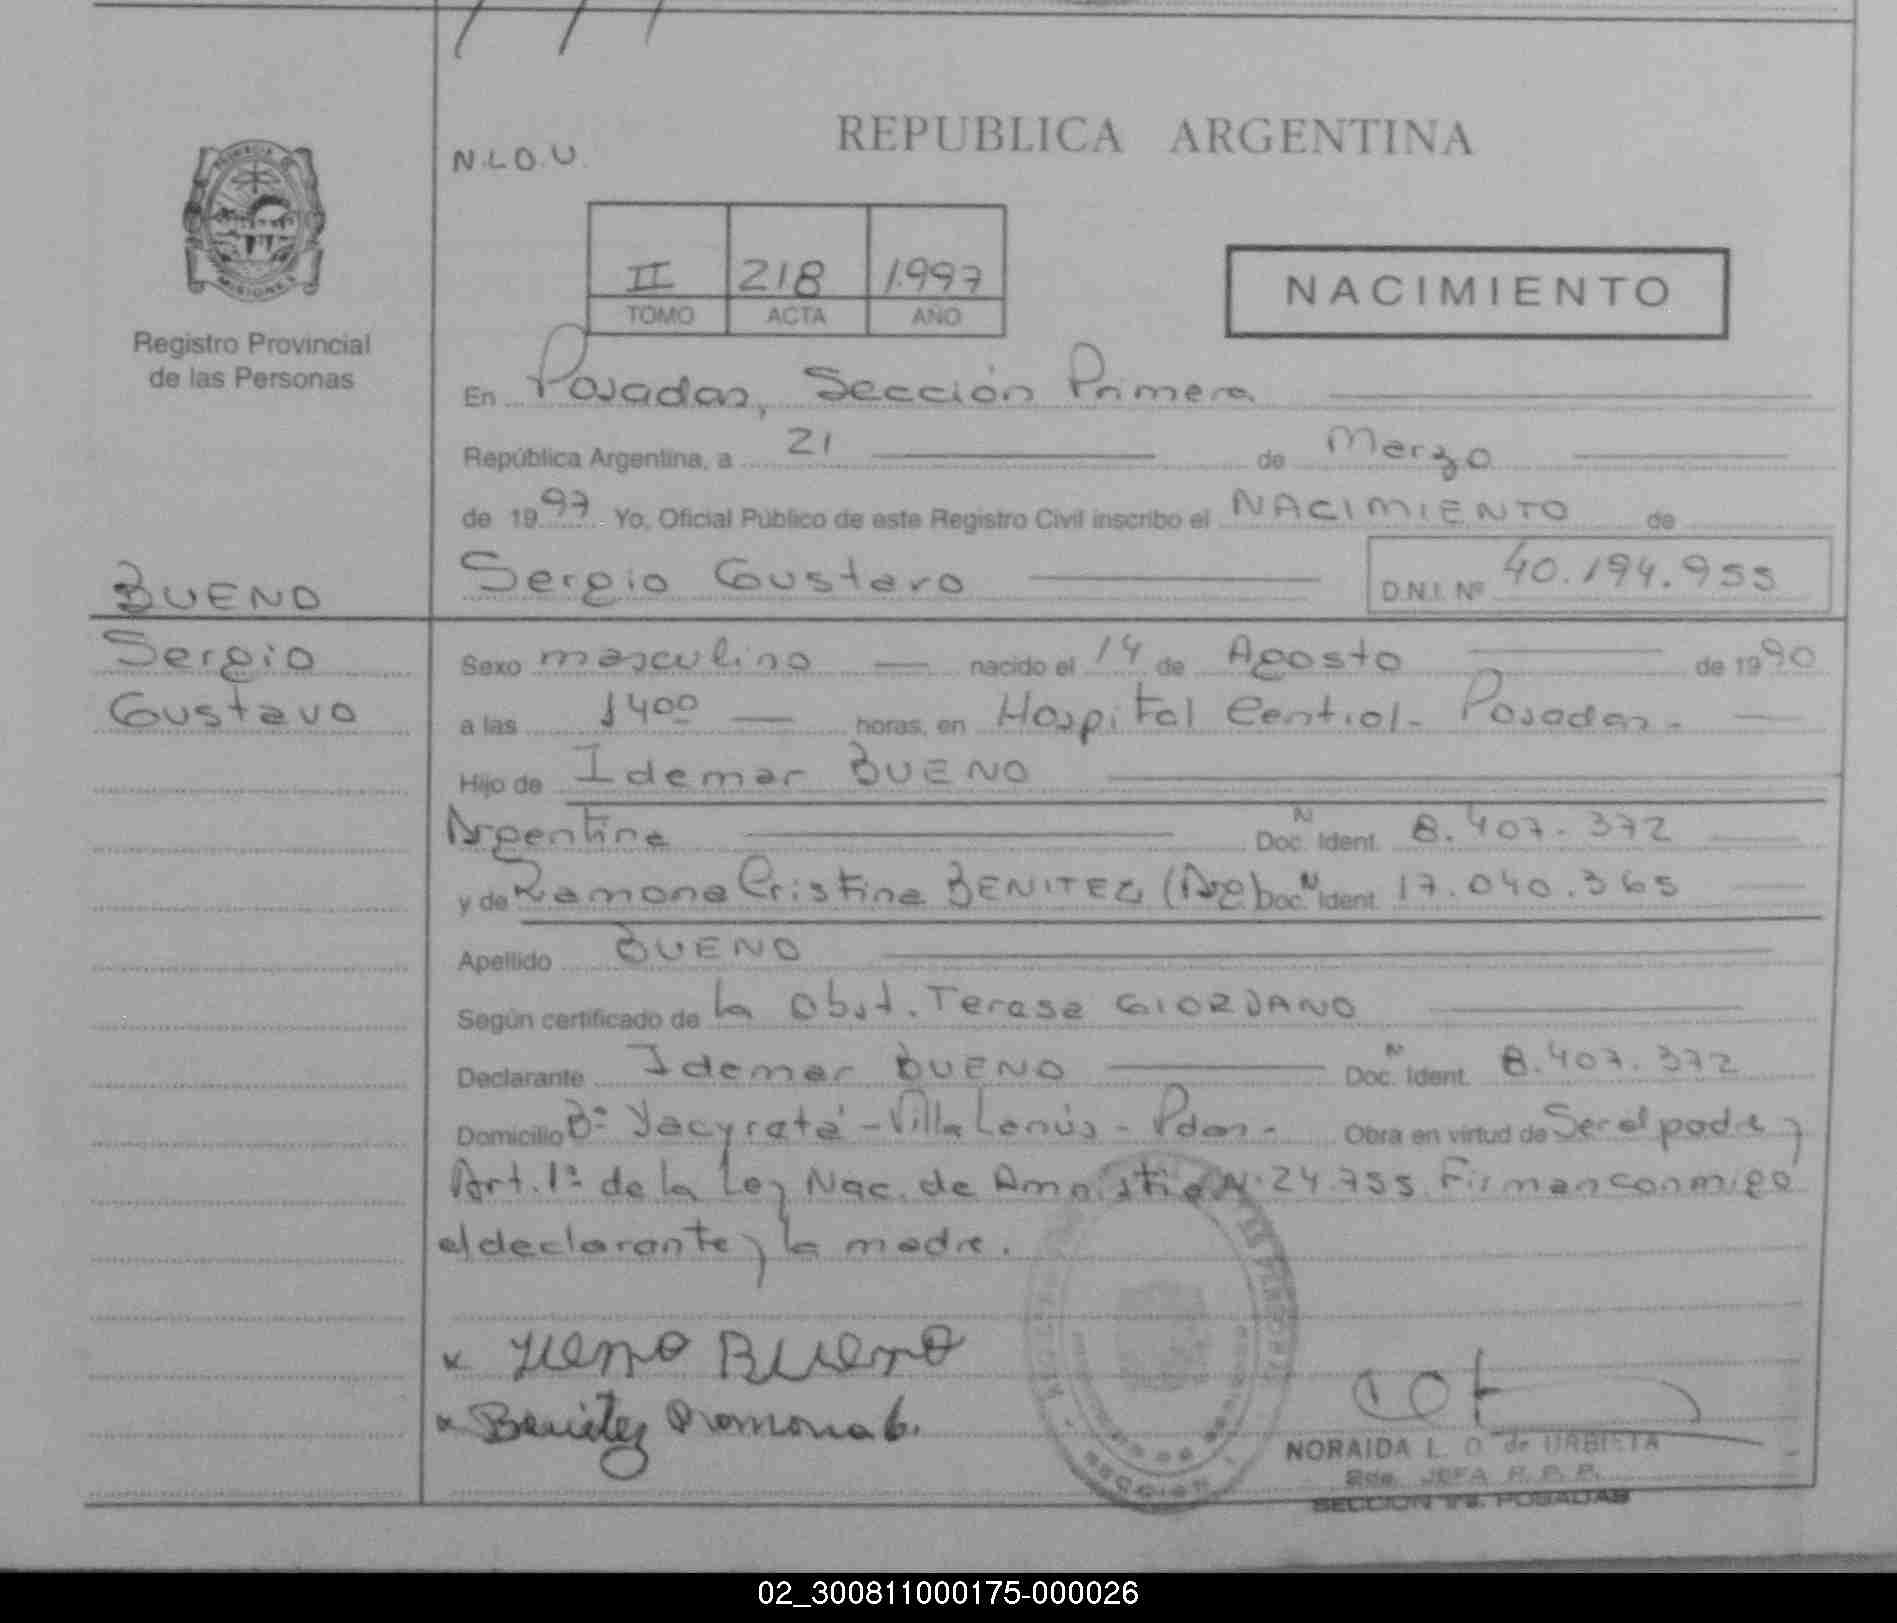 REPUBLICA ARGENTINA
N.L.O.U.
II 218 1.997
TOMO ACTA AÑO
NACIMIENTO
Registro Provincial
de las Personas
En Posadas, Sección Primera
República Argentina, a 21 de Marzo
de 1997 Yo, Oficial Público de este Registro Civil inscribo el NACIMIENTO de
Sergio Gustavo D.N.I. Nº 40.194.955
BUENO
Sergio
Gustavo
Sexo masculino nacido el 14 de Agosto de 1990
a las 1400 horas, en Hospital Central - Posadas -
Hijo de Idemar BUENO
Argentina N Doc. Ident. 8.407.372
y de Ramona Cristina BENITEZ (Arg) N Doc. Ident. 17.040.365
Apellido BUENO
Según certificado de la Obst. Teresa GIORDANO
Declarante Idemar BUENO N Doc. Ident. 8.407.372
Domicilio Bº Yacyretá - Villa Lanús - Pdas - Obra en virtud de Ser el padre y
Art. 1º de la Ley Nac. de Amnistía Nº 24.755. Firman conmigo
el declarante y la madre.
x BUENO
x Benitez Ramona C.
NORAIDA L. O. de URBIETA
2da. JEFA R. P. P.
SECCION 1ra. POSADAS
02_300811000175-000026